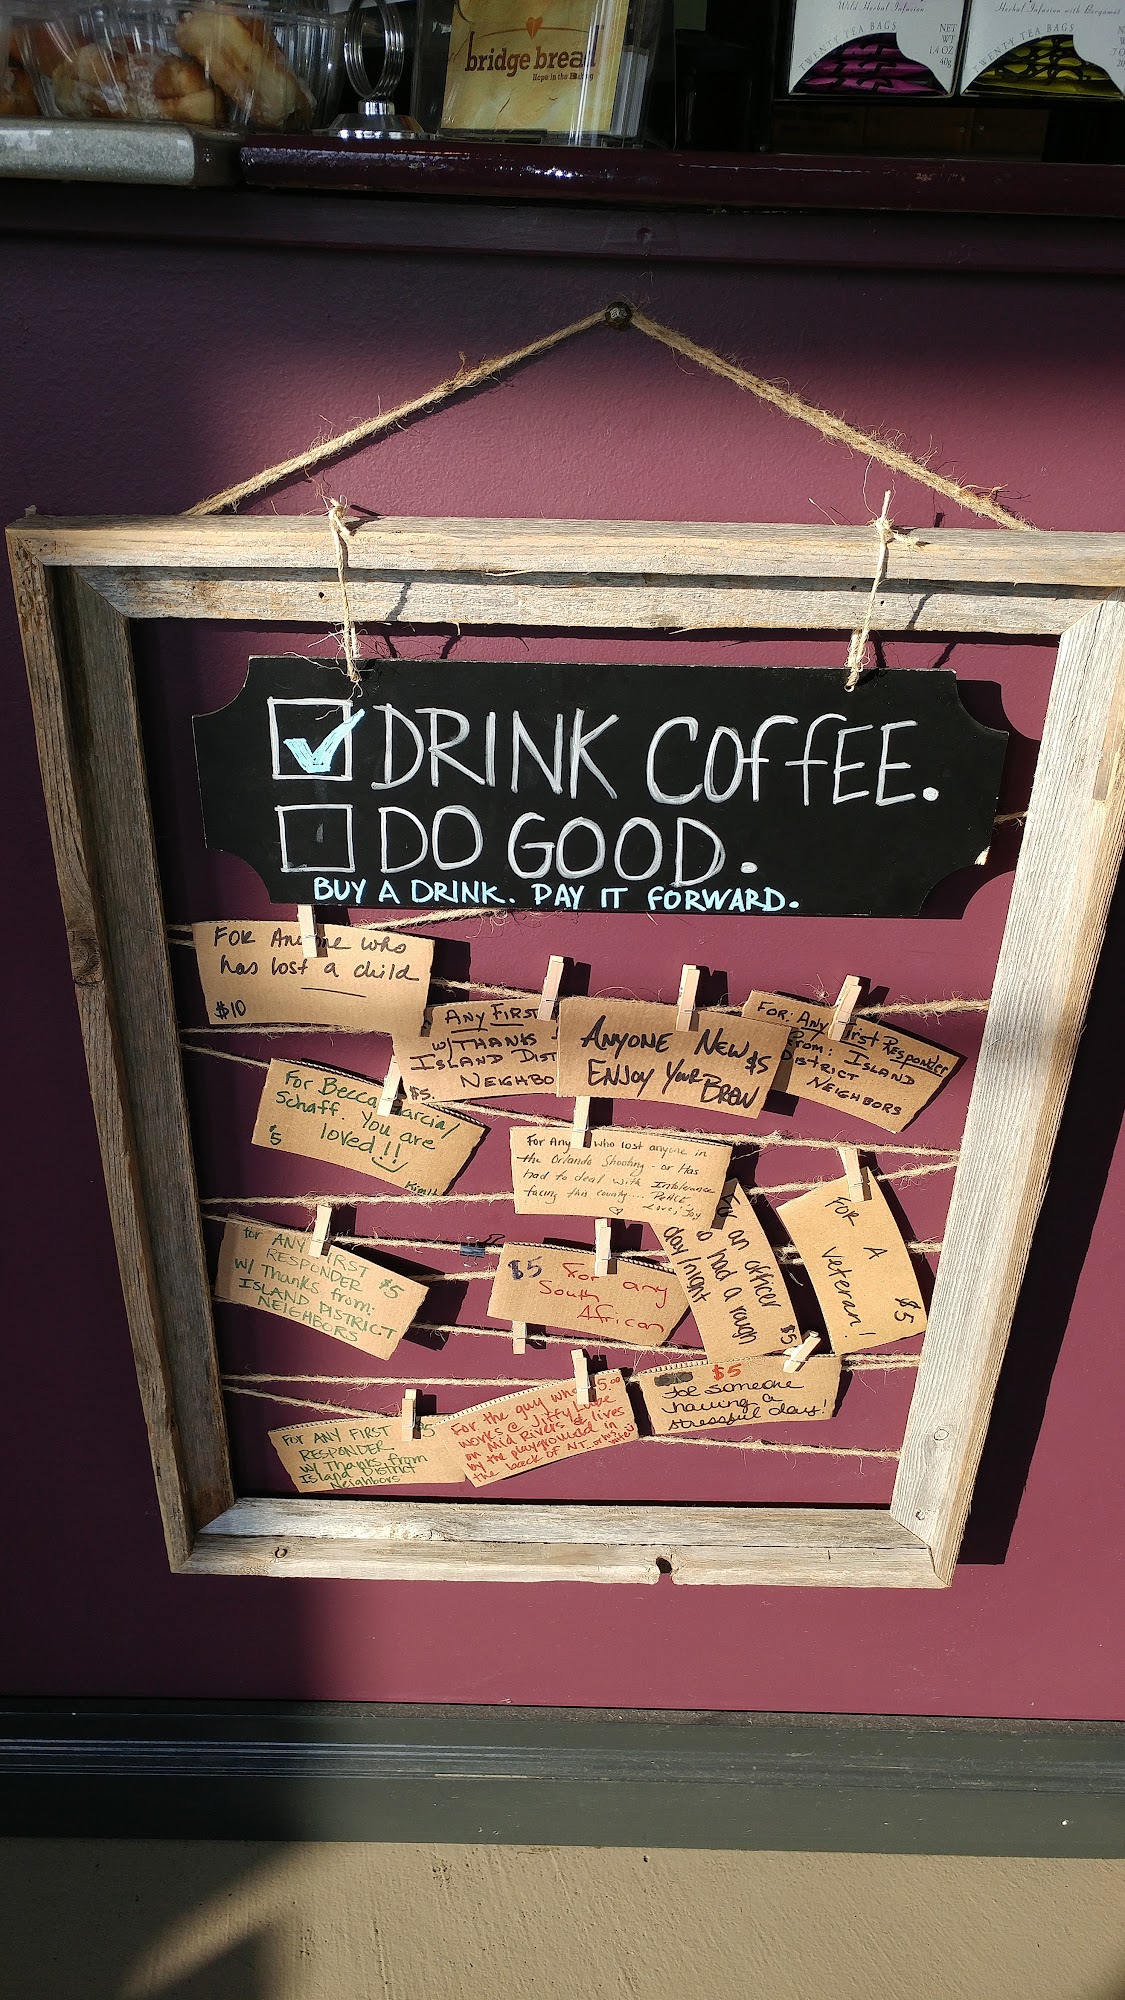 bridge bread
Hope in the Baking
Wild Herbal Infusion
TWENTY TEA BAGS
NET
WT
1.4 OZ
40g
Herbal Infusion with Bergamot
TWENTY TEA BAGS
DRINK COFFEE.
DO GOOD.
BUY A DRINK. PAY IT FORWARD.
FOR Anyone who
has lost a child
$10
ANY FIRST
W/THANKS
ISLAND DIST
NEIGHBO
$5.
ANYONE NEW
$5
ENJOY YOUR BREW
FOR: Any First Responder
From: ISLAND
DISTRICT
NEIGHBORS
For Becca Marcial
Schaff You are
loved!!
$5
For Any who lost anyone in
the Orlando Shooting - or Has
had to deal with Intolerance
facing this country... Peace
Love, Jay
For an officer
had a rough
day/night
$5
FOR
A
veteran!
$5
for ANY FIRST
RESPONDER $5
w/ Thanks from:
ISLAND DISTRICT
NEIGHBORS
$5 For any
South
African
$5
for someone
having a
stressful day!
For the guy who 5.00
works @ Jiffy Lube
on Mid Rivers & lives
by the playground in
the back of NT.
FOR ANY FIRST $5
RESPONDER
w/ Thanks from
Island District
Neighbors